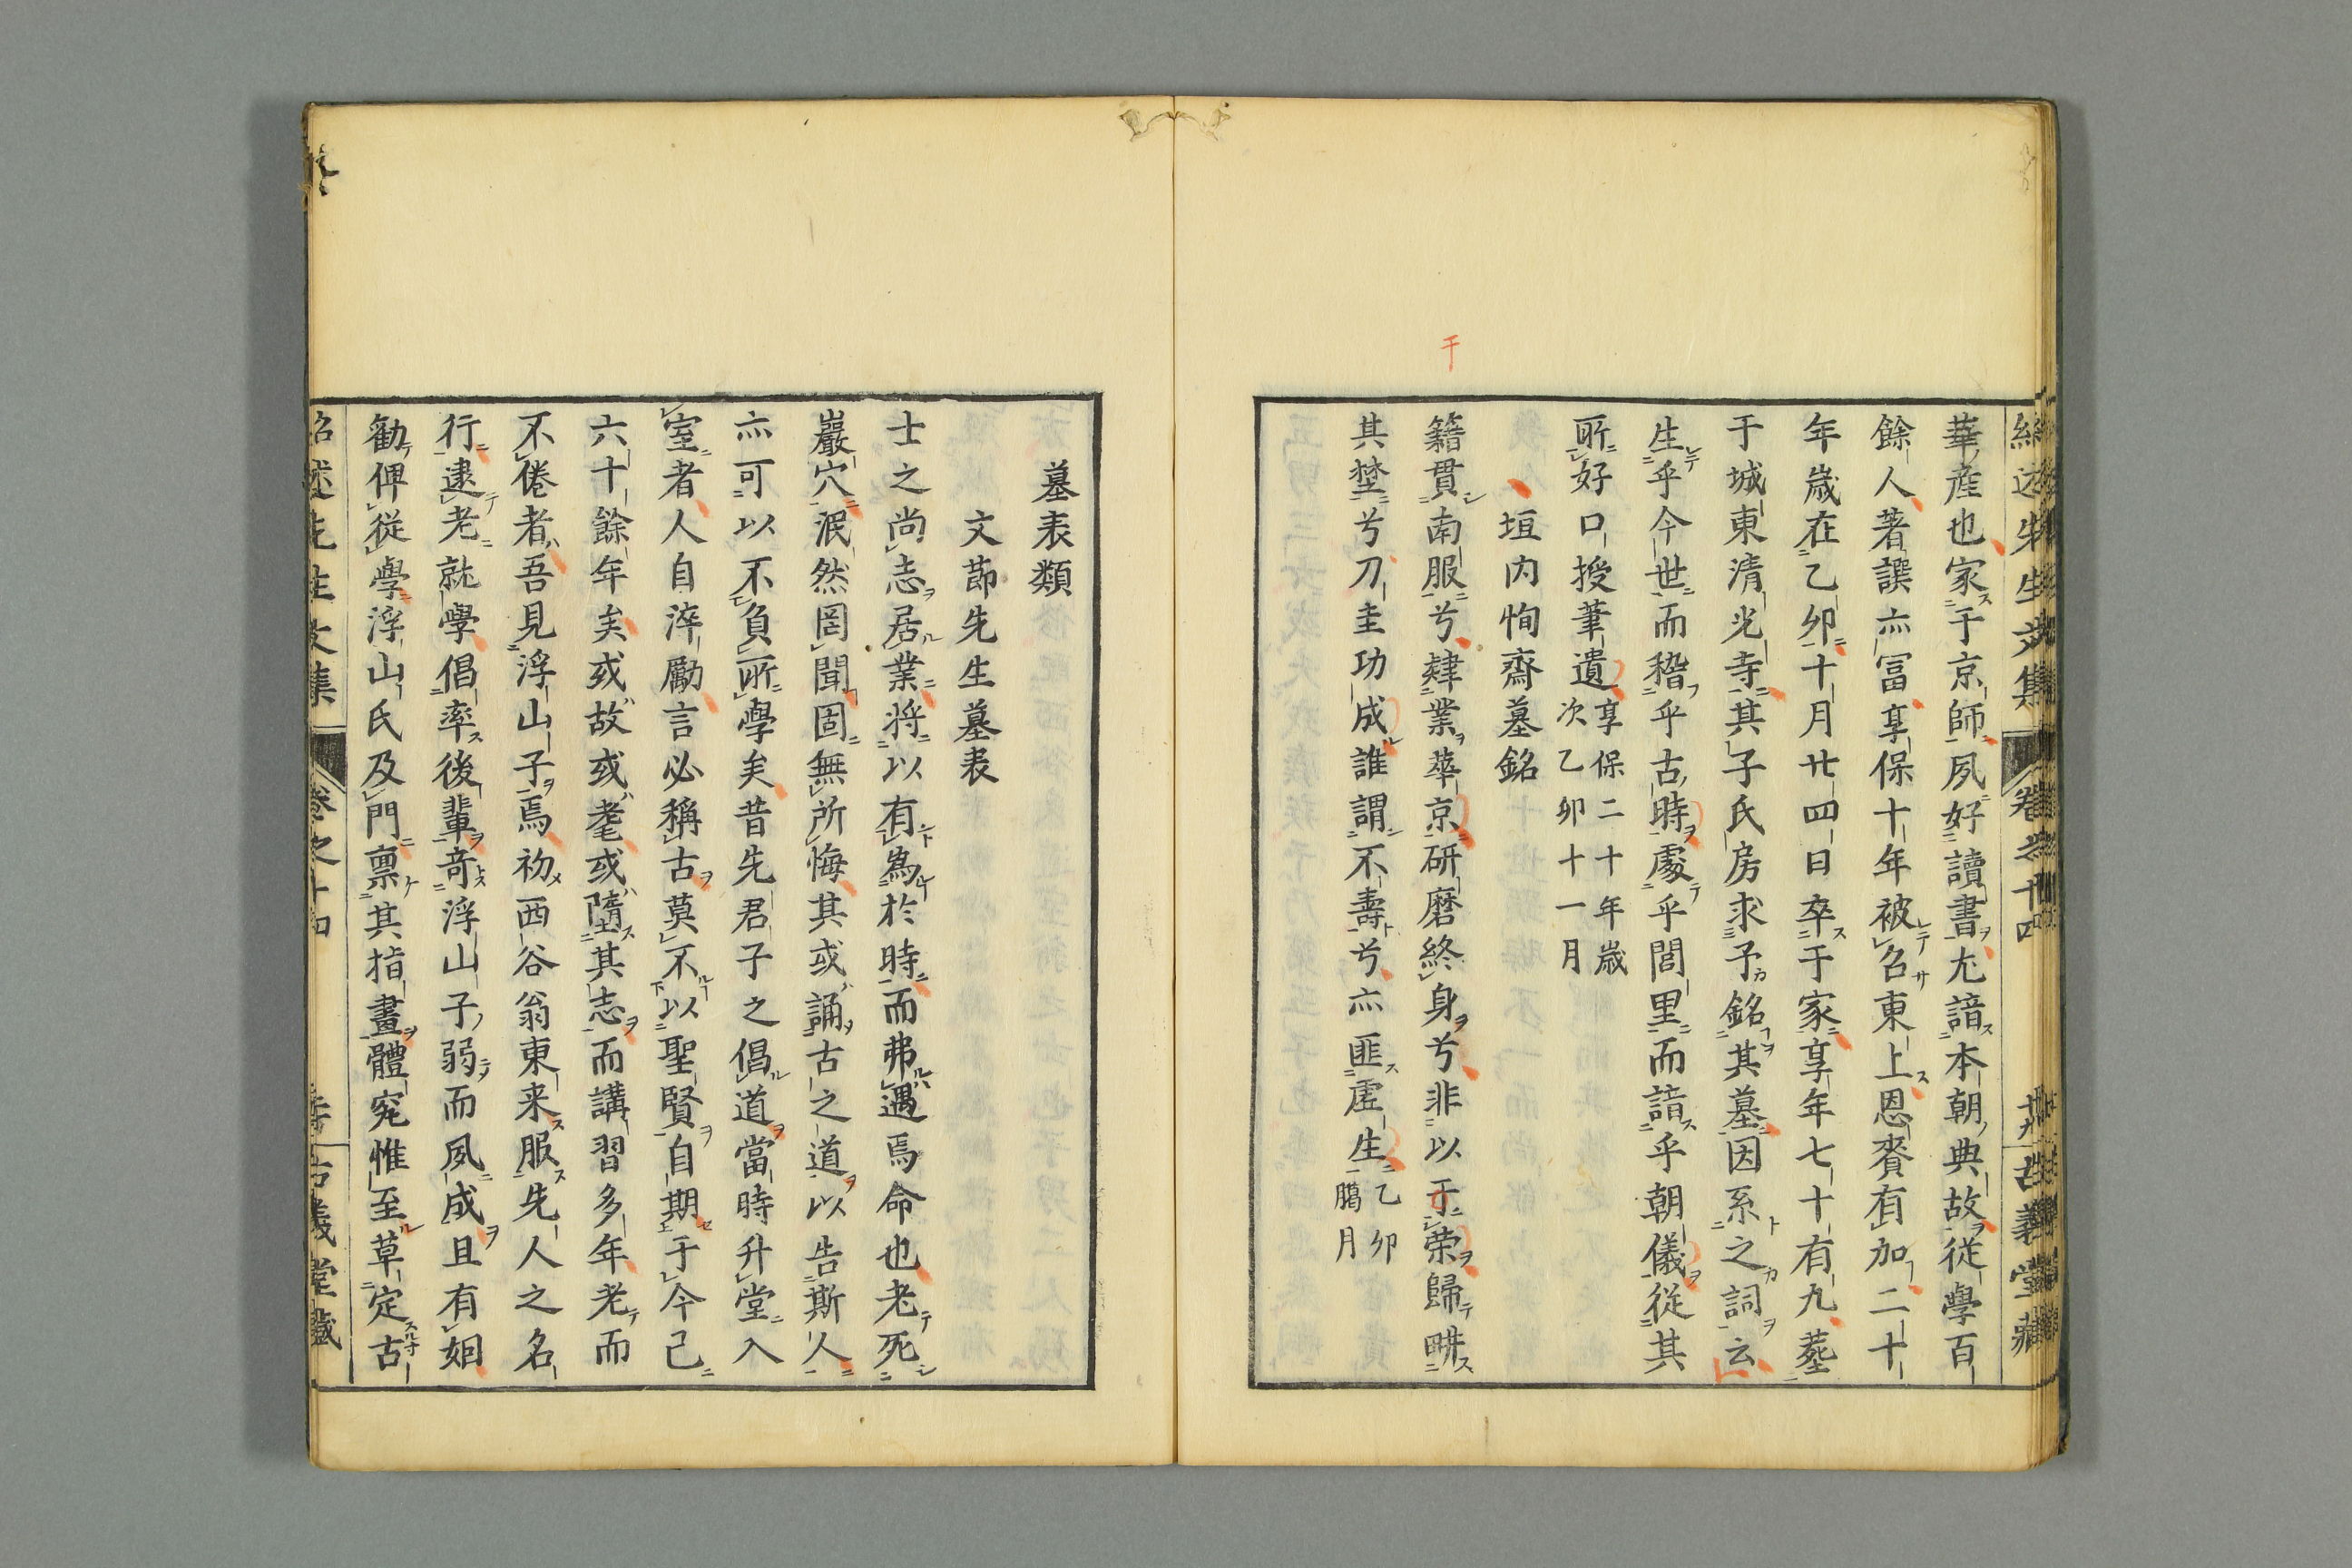 紹述先生文集 卷之十四 十九 古義堂藏
華産也家于京師夙好讀書尤諳本朝典故從學百
餘人著譔亦冨享保十年被召東上恩賚有加二十
年歲在乙卯十月廿四日卒于家享年七十有九葬
于城東清光寺其子氏房求予銘其墓因系之詞云
生乎今世而稽乎古時處乎閭里而諳乎朝儀從其
所好口授筆遺
享保二十年歲
次乙卯十一月
垣内恂齋墓銘
干
籍貫南服兮肄業華京研磨終身兮非以于榮歸畊
其埜兮刀圭功成誰謂不壽兮亦匪虗生
乙卯
臈月
墓表類
文節先生墓表
士之尚志居業將以有爲於時而弗遇焉命也老死
巖穴泯然罔聞固無所悔其或誦古之道以告斯人
亦可以不負所學矣昔先君子之倡道當時升堂入
室者人自淬勵言必稱古莫不以聖賢自期于今已
六十餘年矣或故或耄或墮其志而講習多年老而
不倦者吾見浮山子焉初西谷翁東来服先人之名
行逮老就學倡率後輩竒浮山子弱而夙成且有姻
勸俾從學浮山氏及門禀其指畫體究惟至草定古
紹述先生文集 卷之十四 古義堂藏